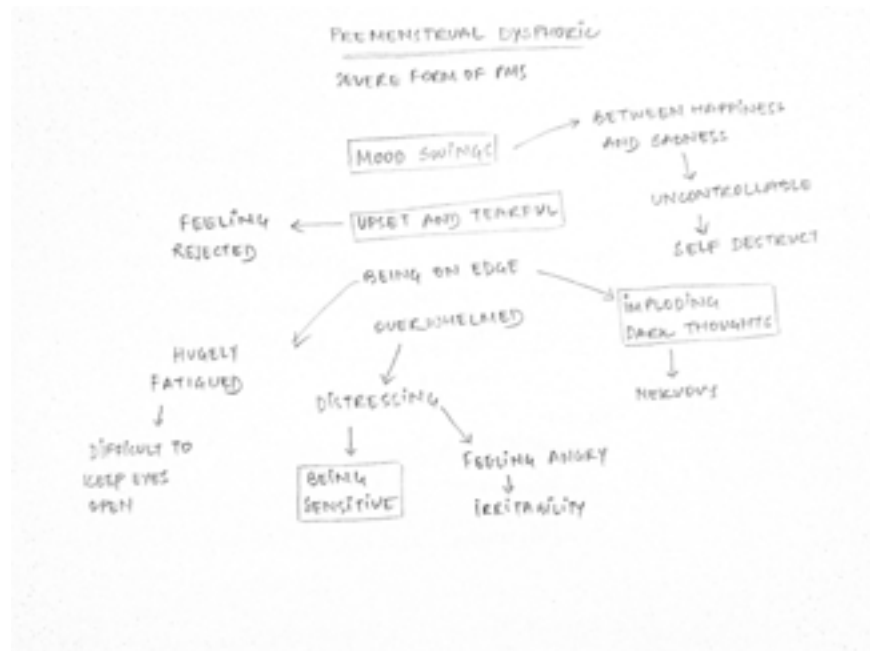 PREMENSTRUAL DYSPHORIC
SEVERE FORM OF PMS
MOOD SWINGS
BETWEEN HAPPINESS
AND SADNESS
UNCONTROLLABLE
SELF DESTRUCT
UPSET AND TEARFUL
FEELING
REJECTED
BEING ON EDGE
IMPLODING
DARK THOUGHTS
NERVOUS
HUGELY
FATIGUED
DIFFICULT TO
KEEP EYES
OPEN
OVERWHELMED
DISTRESSING
BEING
SENSITIVE
FEELING ANGRY
IRRITABILITY